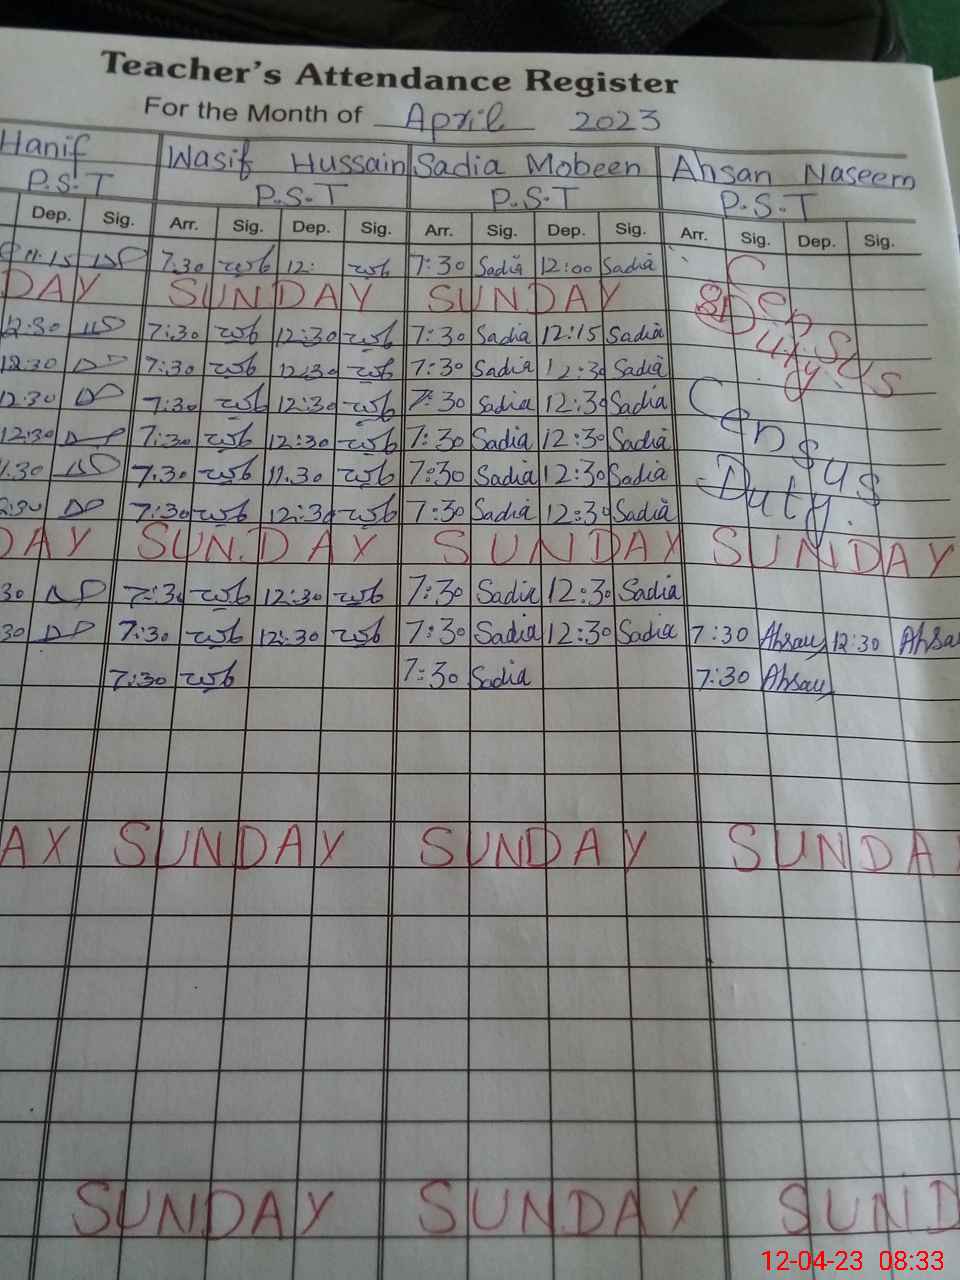 Teacher's Attendance Register
For the Month of April 2023
Hanif Wasif Hussain Sadia Mobeen Ahsan Naseem
P.S.T P.S.T P.S.T P.S.T
Dep. Sig. Arr. Sig. Dep. Sig. Arr. Sig. Dep. Sig. Arr. Sig. Dep. Sig.
11:15 7:30 12: 7:30 Sadia 12:00 Sadia
DAY SUNDAY SUNDAY
12:30 7:30 12:30 7:30 Sadia 12:15 Sadia
12:30 7:30 12:30 7:30 Sadia 12:30 Sadia
12:30 7:30 12:30 7:30 Sadia 12:30 Sadia
12:30 7:30 12:30 7:30 Sadia 12:30 Sadia
1.30 7:30 11:30 7:30 Sadia 12:30 Sadia
7:30 12:30 7:30 Sadia 12:30 Sadia
Census
Duty.
Census
Duty.
DAY SUNDAY SUNDAY SUNDAY
30 7:30 12:30 7:30 Sadia 12:30 Sadia
30 7:30 12:30 7:30 Sadia 12:30 Sadia 7:30 Ahsan 12:30 Ahsa
7:30 7:30 Sadia 7:30 Ahsan
AY SUNDAY SUNDAY SUNDA
SUNDAY SUNDAY SUND
12-04-23 08:33